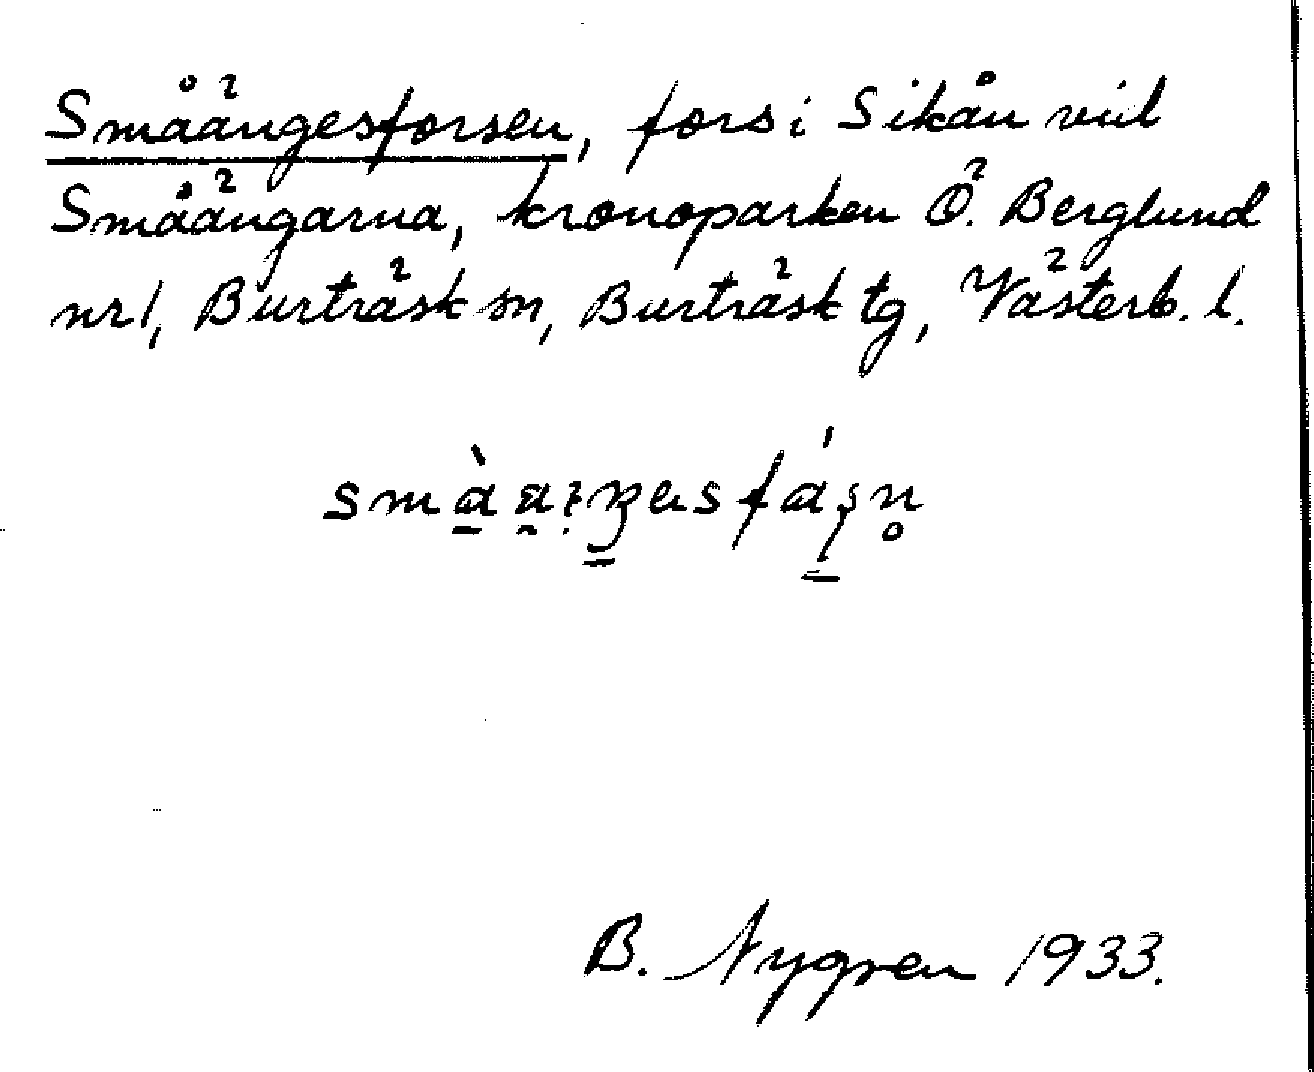 Småängesforsen, fors i Sikån vid
Småängarna, kronoparken Ö. Berglund
nr 1, Burträsk sn, Burträsk tg, Västerb. l.
B. Nygren 1933.